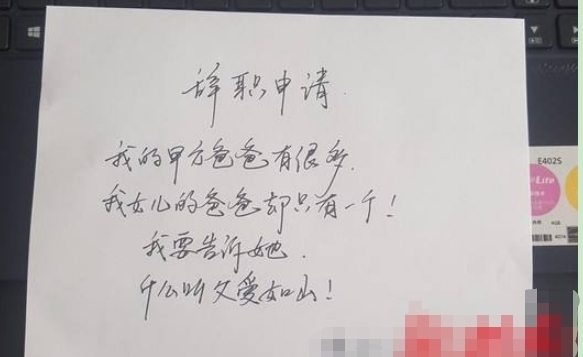 辞职申请.
我的甲方爸爸有很多.
我女儿的爸爸却只有一个!
我要告诉她.
什么叫父爱如山!
E402S
Lite